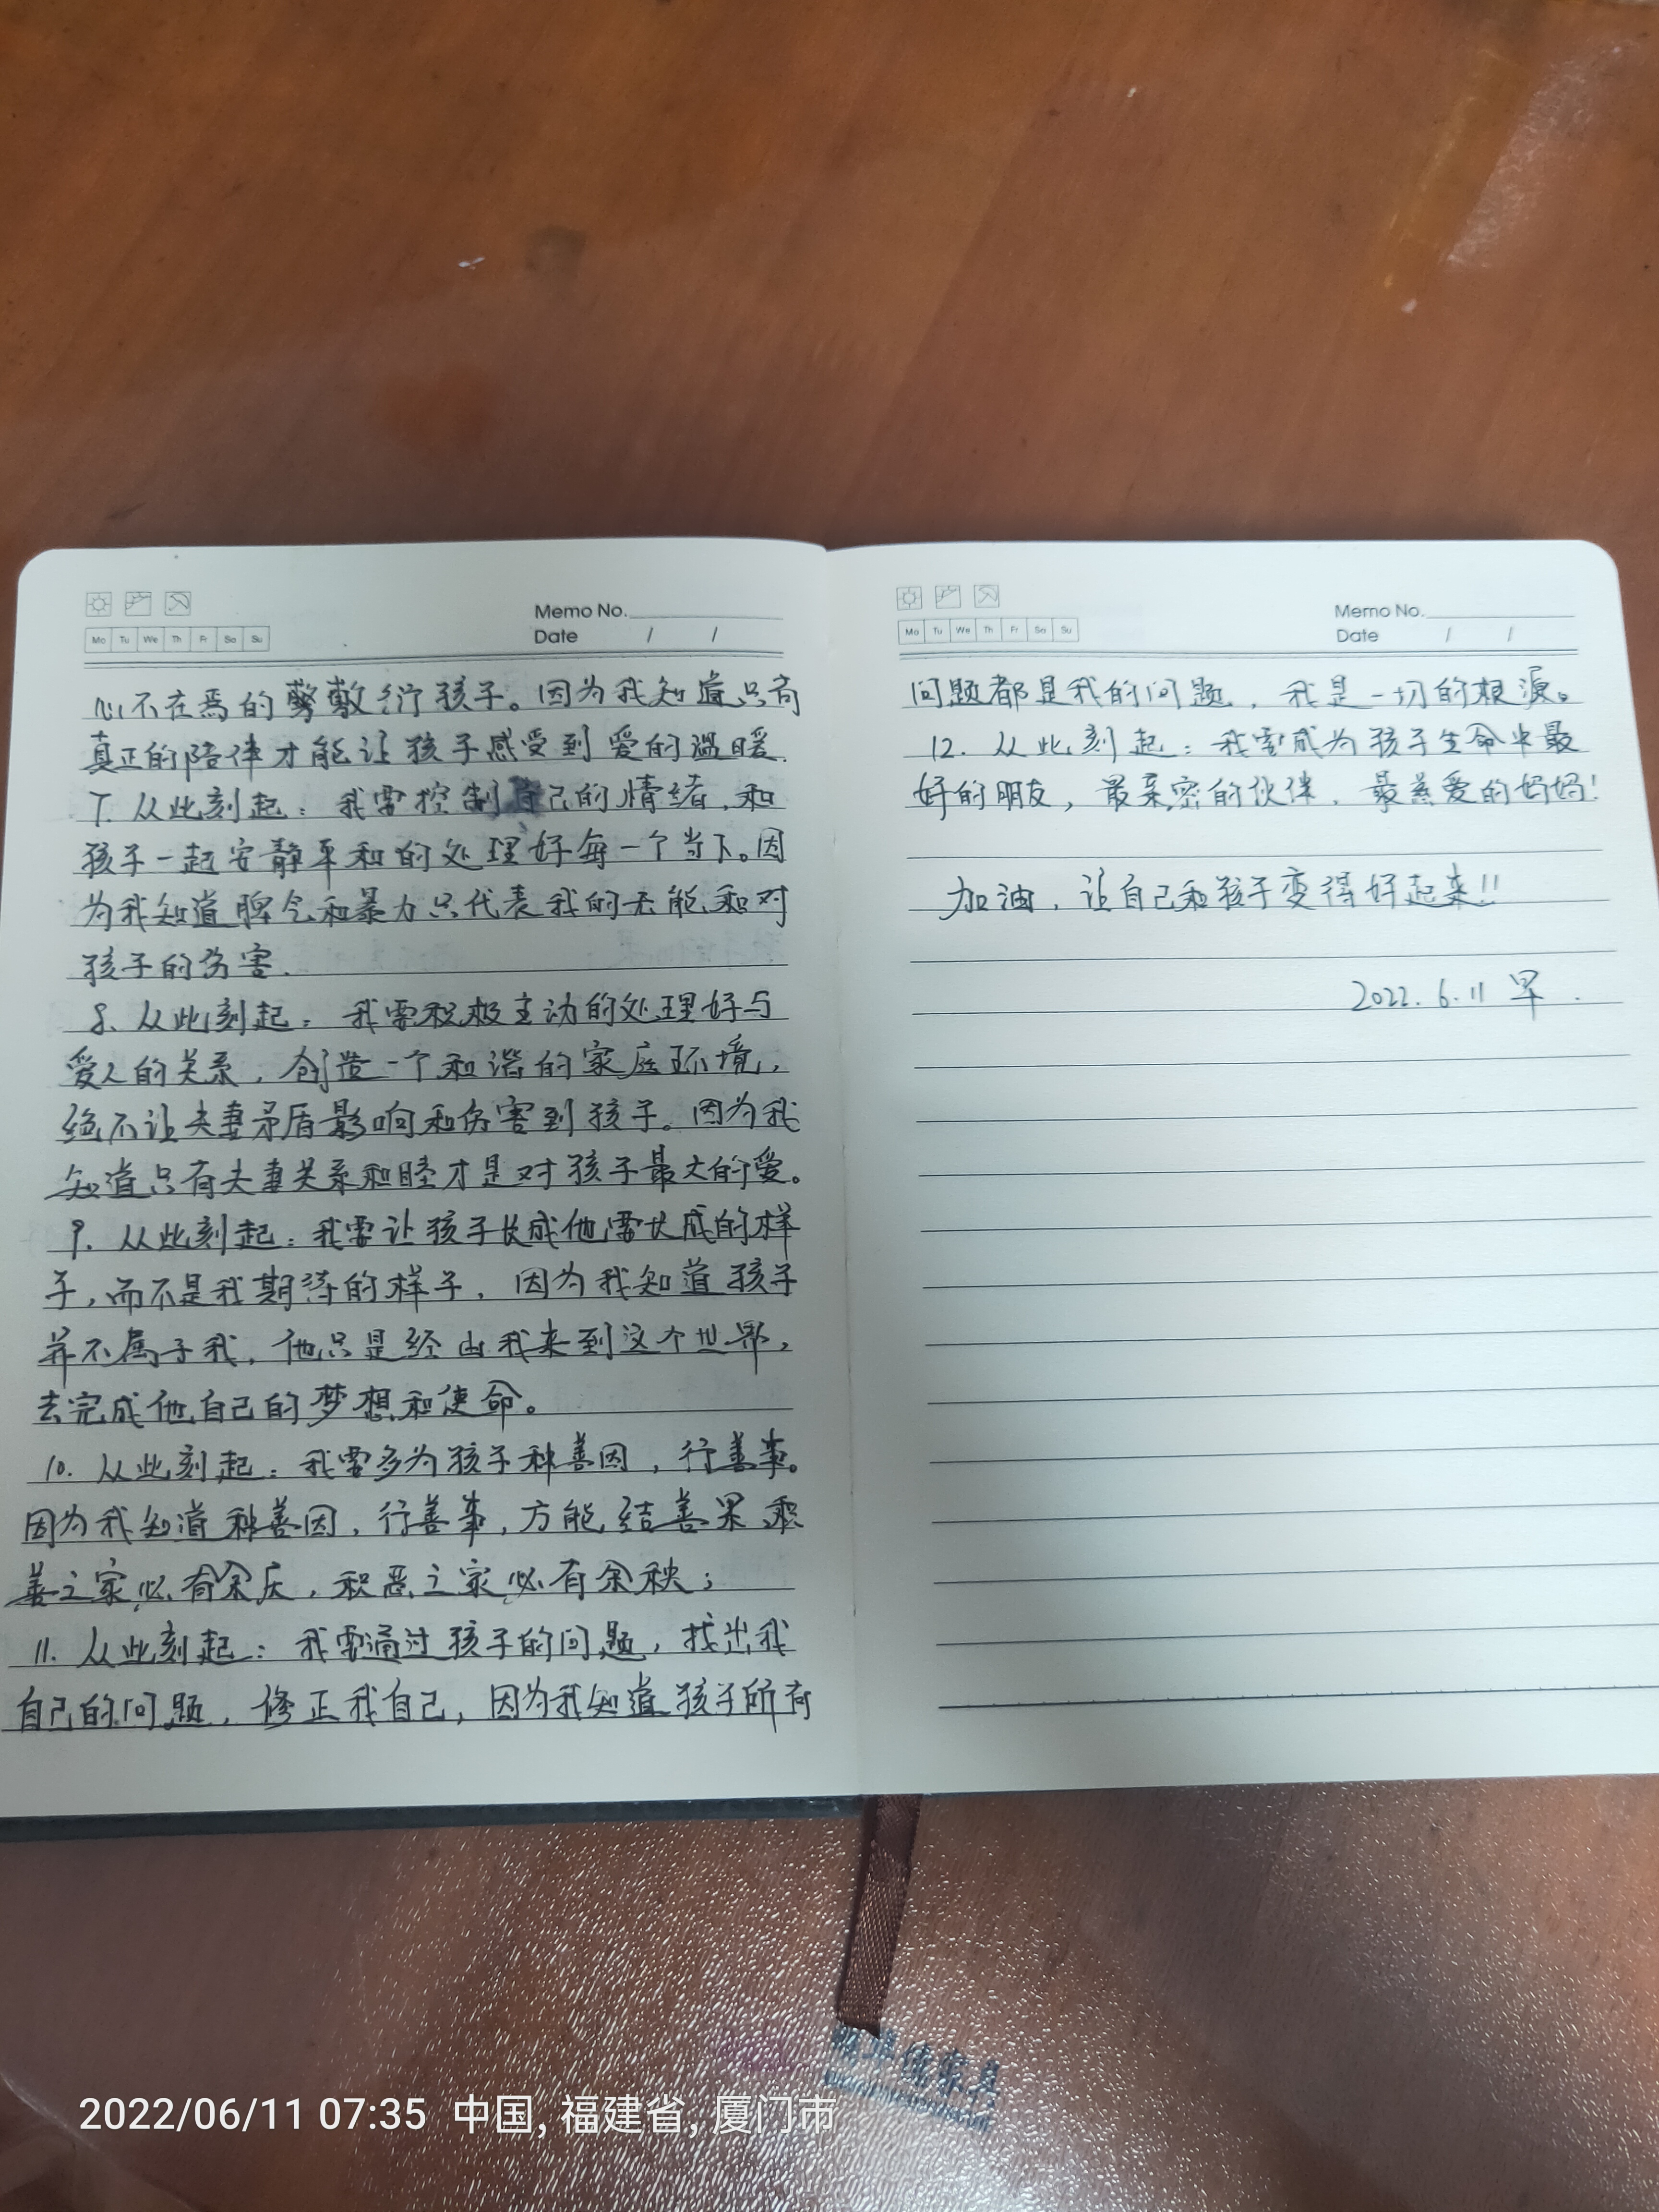 Memo No.
Date / /
Mo Tu We Th Fr Sa Su
心不在焉的敷衍孩子。因为我知道只有
真正的陪伴才能让孩子感受到爱的温暖.
7. 从此刻起：我需控制自己的情绪，和
孩子一起安静平和的处理好每一个当下。因
为我知道脾气和暴力只代表我的无能和对
孩子的伤害.
8. 从此刻起：我需积极主动的处理好与
爱人的关系，创造一个和谐的家庭环境，
绝不让夫妻矛盾影响和伤害到孩子。因为我
知道只有夫妻关系和睦才是对孩子最大的爱。
9. 从此刻起：我需让孩子长成他需长成的样
子，而不是我期待的样子，因为我知道孩子
并不属于我，他只是经由我来到这个世界，
去完成他自己的梦想和使命。
10. 从此刻起：我需多为孩子种善因，行善事。
因为我知道种善因，行善事，方能结善果，积
善之家必有余庆，积恶之家必有余秧；
11. 从此刻起：我需通过孩子的问题，找出我
自己的问题，修正我自己，因为我知道孩子所有
Memo No.
Date / /
Mo Tu We Th Fr Sa Su
问题都是我的问题，我是一切的根源。
12. 从此刻起：我需成为孩子生命中最
好的朋友，最亲密的伙伴，最慈爱的妈妈！
加油，让自己和孩子变得好起来!!
2022.6.11 早.
2022/06/11 07:35 中国, 福建省, 厦门市